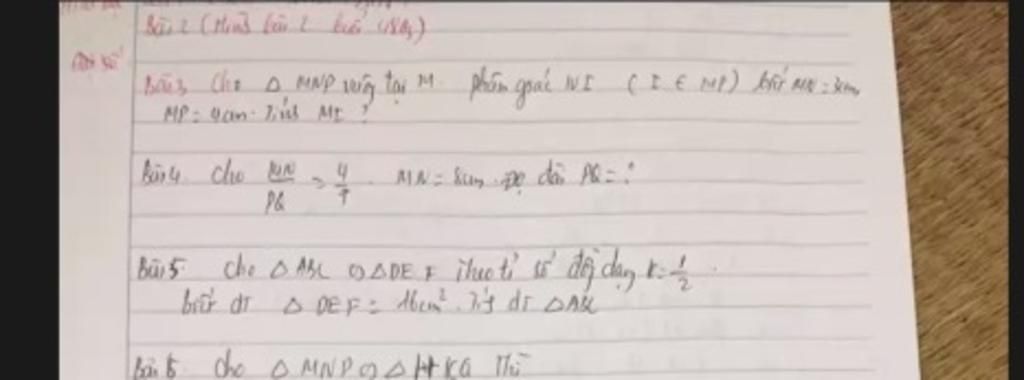 Bài 2 (Hình bài 2 buổi
Đại số
Bài 3 Cho △ MNP vuông tại M. phân giác NI ( I ∈ MP) biết MN = 3cm,
MP = 4cm. Tính MI ?
Bài 4. Cho MN/PQ = 4/7. MN = 8cm. độ dài PQ = ?
Bài 5. Cho △ ABC ∽ △ DEF theo tỉ số đồng dạng k = 1/2.
biết dt △ DEF = 16cm². Tính dt △ ABC
Bài 6 Cho △ MNP ∽ △ HKG Thì